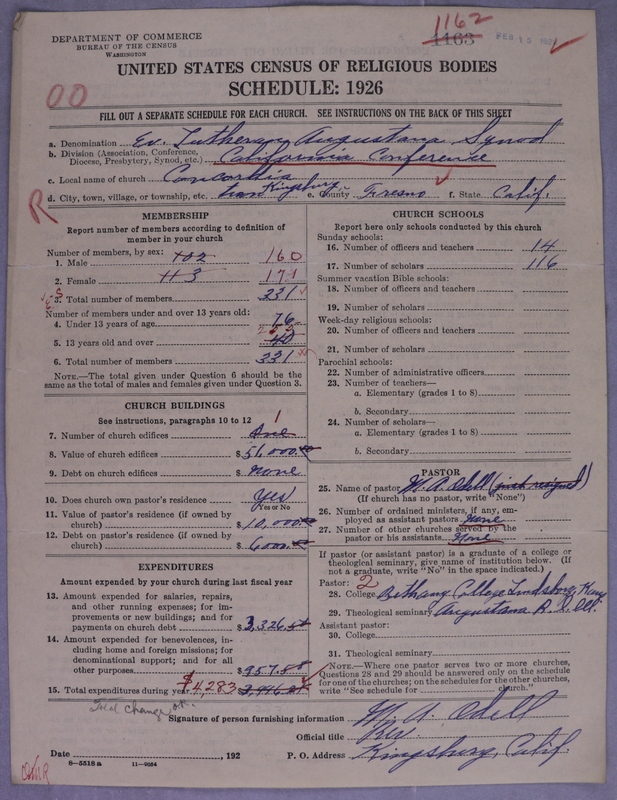 1162
1163
FEB 15 192
DEPARTMENT OF COMMERCE
BUREAU OF THE CENSUS
WASHINGTON
UNITED STATES CENSUS OF RELIGIOUS BODIES
SCHEDULE: 1926
OO
FILL OUT A SEPARATE SCHEDULE FOR EACH CHURCH. SEE INSTRUCTIONS ON THE BACK OF THIS SHEET
a. Denomination Ev. Lutheran Augustana Synod
b. Division (Association, Conference,
Diocese, Presbytery, Synod, etc.) California Conference
c. Local name of church Concordia
d. City, town, village, or township, etc. town Kingsburg e. County Fresno f. State Calif.
R
MEMBERSHIP
Report number of members according to definition of
member in your church
Number of members, by sex:
1. Male 160
2. Female 113 171
3. Total number of members 331
Number of members under and over 13 years old:
4. Under 13 years of age 76
5. 13 years old and over
6. Total number of members 331
NOTE.—The total given under Question 6 should be the
same as the total of males and females given under Question 3.
CHURCH BUILDINGS
See instructions, paragraphs 10 to 12
1
7. Number of church edifices One
8. Value of church edifices $51,000.00
9. Debt on church edifices $None
10. Does church own pastor's residence? Yes
Yes or No
11. Value of pastor's residence (if owned by
church) $10,000.00
12. Debt on pastor's residence (if owned by
church) $6000.00
EXPENDITURES
Amount expended by your church during last fiscal year
13. Amount expended for salaries, repairs,
and other running expenses; for im-
provements or new buildings; and for
payments on church debt $3,326
14. Amount expended for benevolences, in-
cluding home and foreign missions; for
denominational support; and for all
other purposes $957.88
15. Total expenditures during year $4,283
Total change, ok.
CHURCH SCHOOLS
Report here only schools conducted by this church
Sunday schools:
16. Number of officers and teachers 14
17. Number of scholars 116
Summer vacation Bible schools:
18. Number of officers and teachers
19. Number of scholars
Week-day religious schools:
20. Number of officers and teachers
21. Number of scholars
Parochial schools:
22. Number of administrative officers
23. Number of teachers—
a. Elementary (grades 1 to 8)
b. Secondary
24. Number of scholars—
a. Elementary (grades 1 to 8)
b. Secondary
PASTOR
25. Name of pastor M. A. Odell (just resigned)
(If church has no pastor, write "None")
26. Number of ordained ministers, if any, em-
ployed as assistant pastors None
27. Number of other churches served by the
pastor or his assistants None
If pastor (or assistant pastor) is a graduate of a college or
theological seminary, give name of institution below. (If
not a graduate, write "No" in the space indicated.)
Pastor: 2
28. College Bethany College Lindsborg, Kans
29. Theological seminary Augustana R. I. Ill.
Assistant pastor:
30. College
31. Theological seminary
NOTE.—Where one pastor serves two or more churches,
Questions 28 and 29 should be answered only on the schedule
for one of the churches; on the schedules for the other churches,
write "See schedule for church."
Signature of person furnishing information M. A. Odell
Official title Rev.
Date , 192 P. O. Address Kingsburg, Calif.
8-5518 a 11-2054